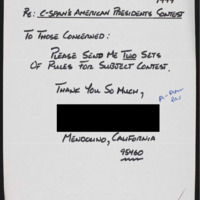 1999
RE: C-SPAN'S AMERICAN PRESIDENTS CONTEST
TO THOSE CONCERNED:
PLEASE SEND ME TWO SETS
OF RULES FOR SUBJECT CONTEST.
THANK YOU SO MUCH,
MENDOCINO, CALIFORNIA
95460